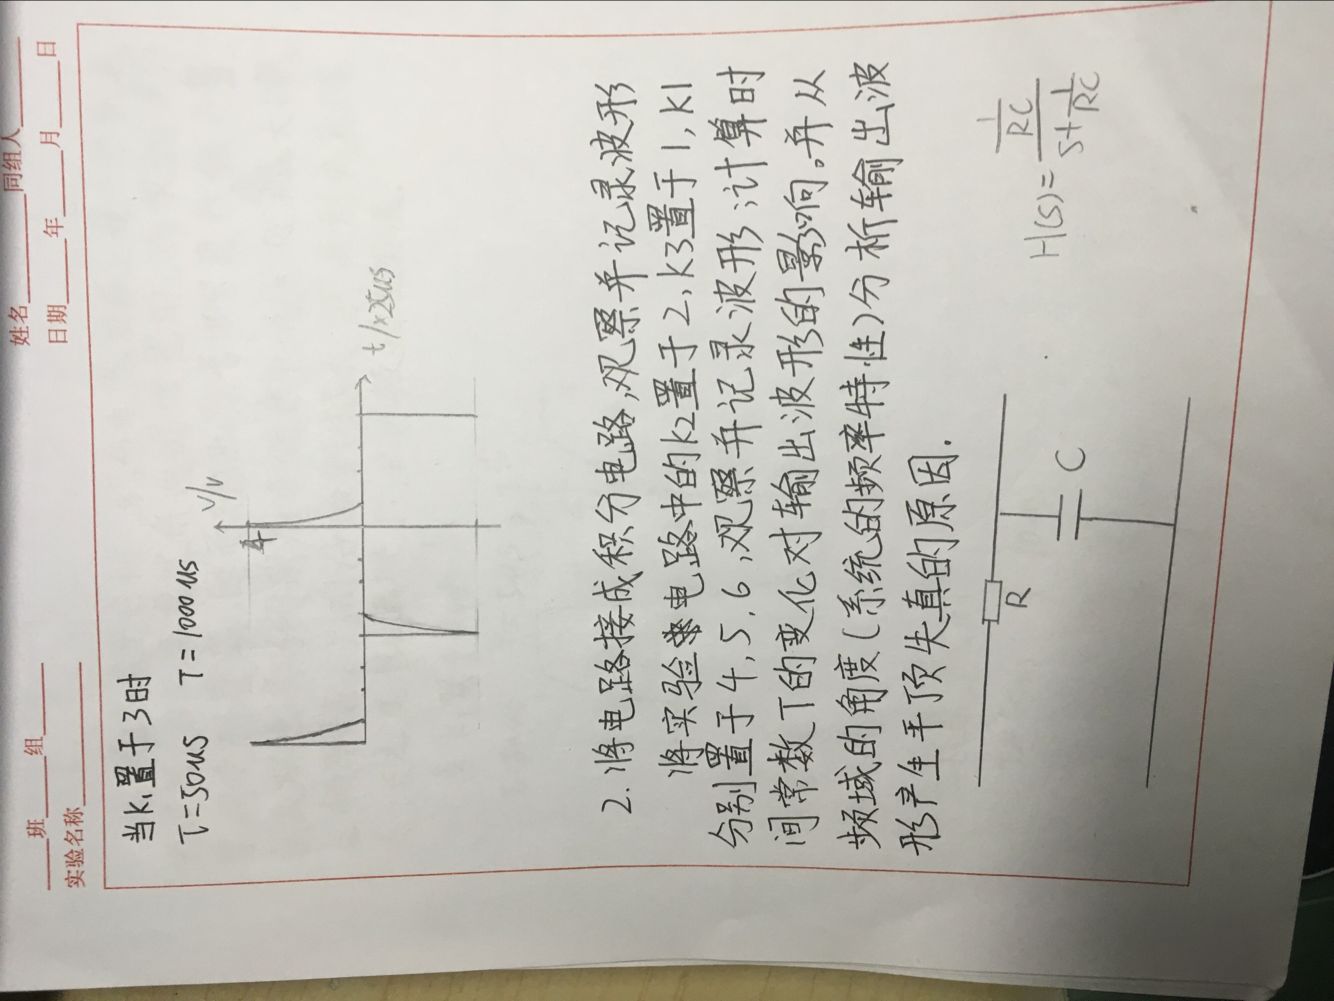 ___班___组___ 姓名______同组人______
实验名称______ 日期____年____月____日
当K₁置于3时
τ=50us T=1000us
V/v
4
t/×25us
2.将电路接成积分电路,观察并记录波形
将实验电路中的K2置于2,K3置于1,K1
分别置于4,5,6,观察并记录波形;计算时
间常数T的变化对输出波形的影响。并从
频域的角度(系统的频率特性)分析输出波
形产生平顶失真的原因.
R
C
H(s)=\frac{\frac{1}{RC}}{s+\frac{1}{RC}}